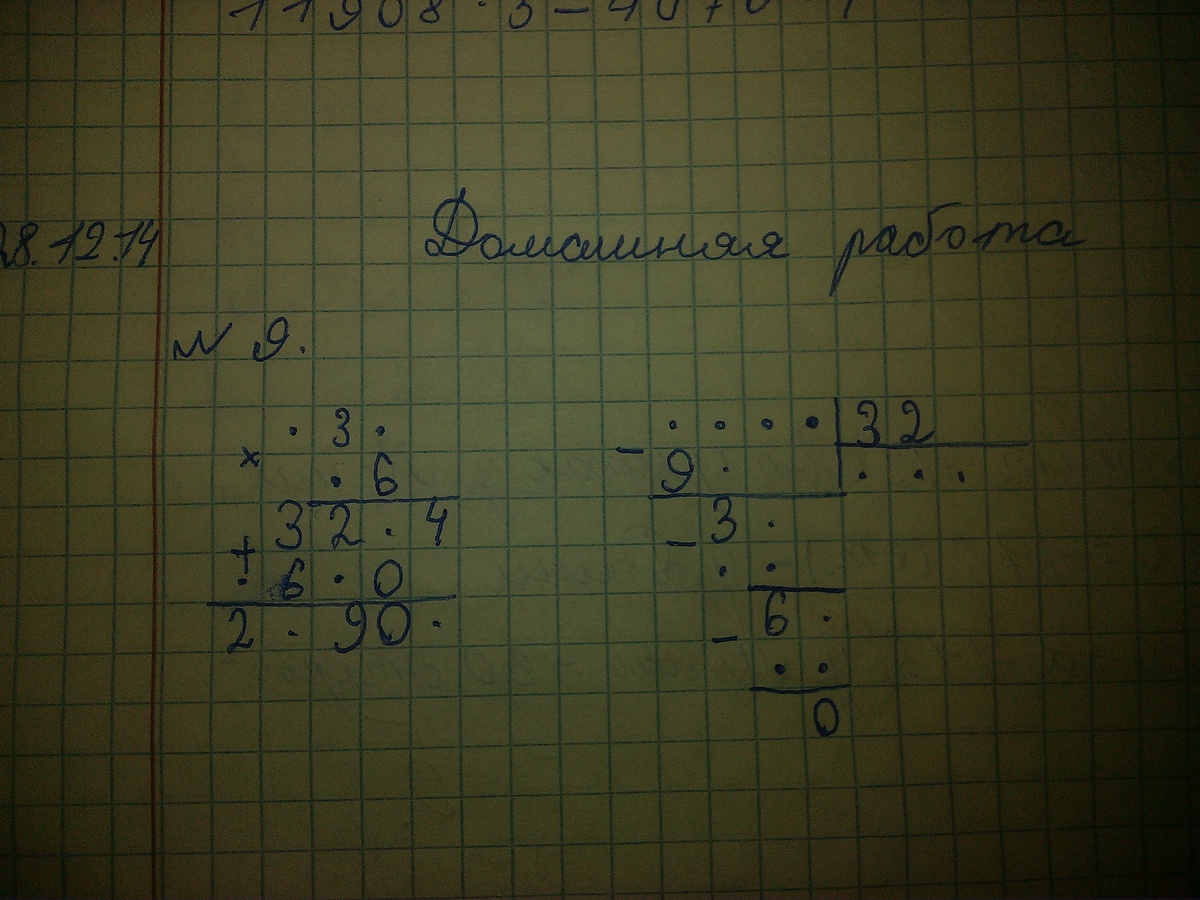 11908·3-4070
28.12.14
Домашняя работа
№ 9.
· 3 ·
× · 6
3 2 · 4
+ · 6 · 0
2 · 9 0 ·
- · · · · | 3 2
9 · | · · ·
- 3 ·
· ·
- 6 ·
· ·
0